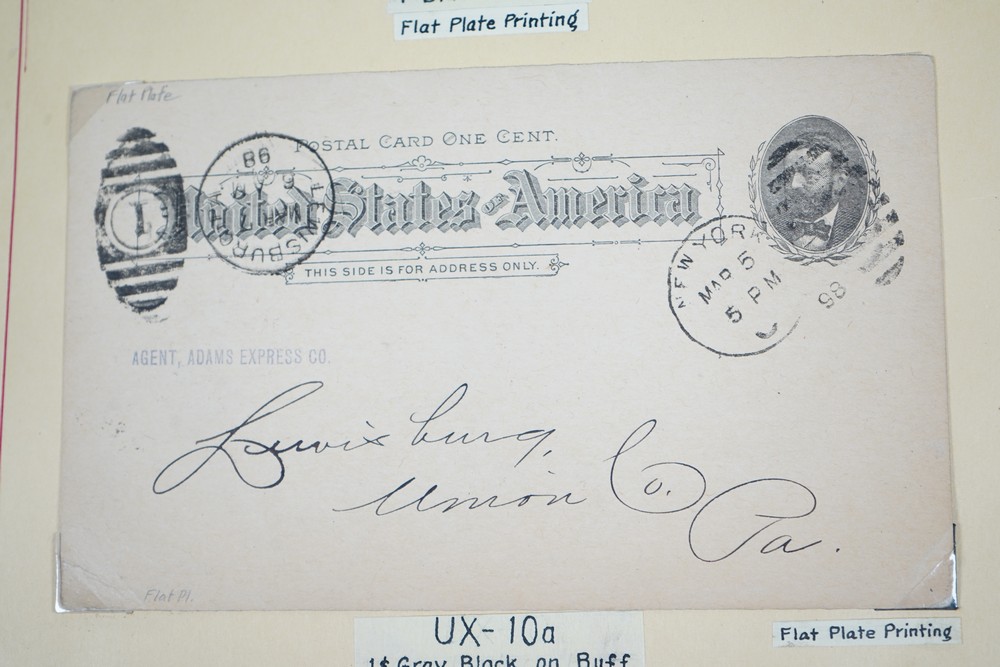 Flat Plate Printing
Flat Plate
POSTAL CARD ONE CENT.
United States of America
THIS SIDE IS FOR ADDRESS ONLY.
1
LEWISBURG
MAR 7
6 AM
98
NEW YORK
MAR 5
5 PM
98
AGENT, ADAMS EXPRESS CO.
Lewisburg,
Union Co.
Pa.
Flat Pl.
UX-10a
1¢ Gray Black on Buff
Flat Plate Printing